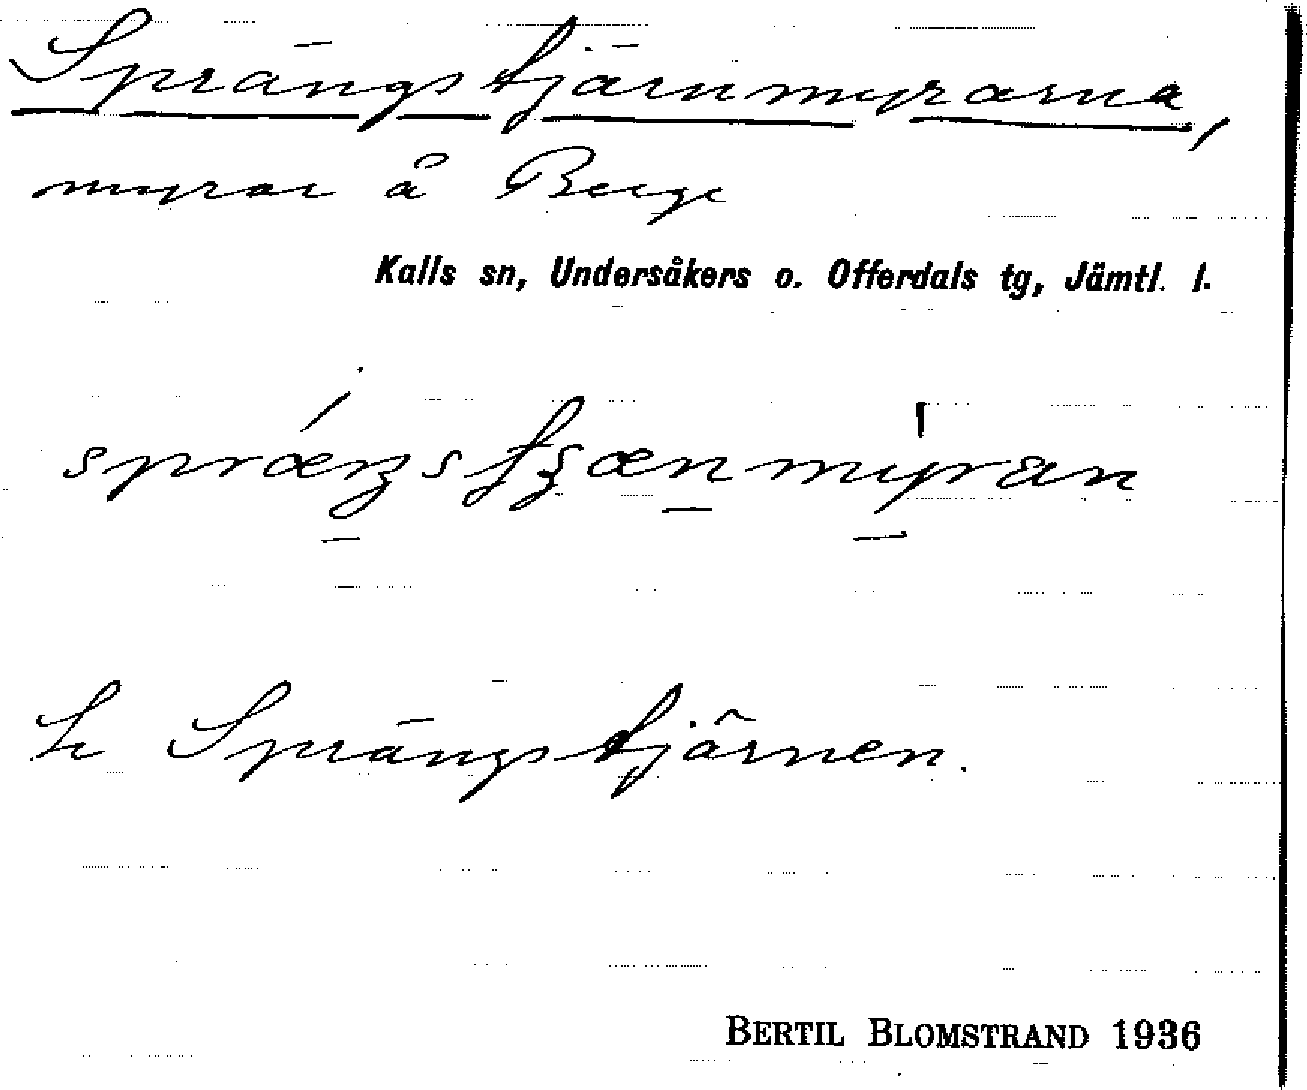 Sprängstjärnmyrarna,
myrar å Berge
Kalls sn, Undersåkers o. Offerdals tg, Jämtl. l.
Sprängstjärnen.
BERTIL BLOMSTRAND 1936